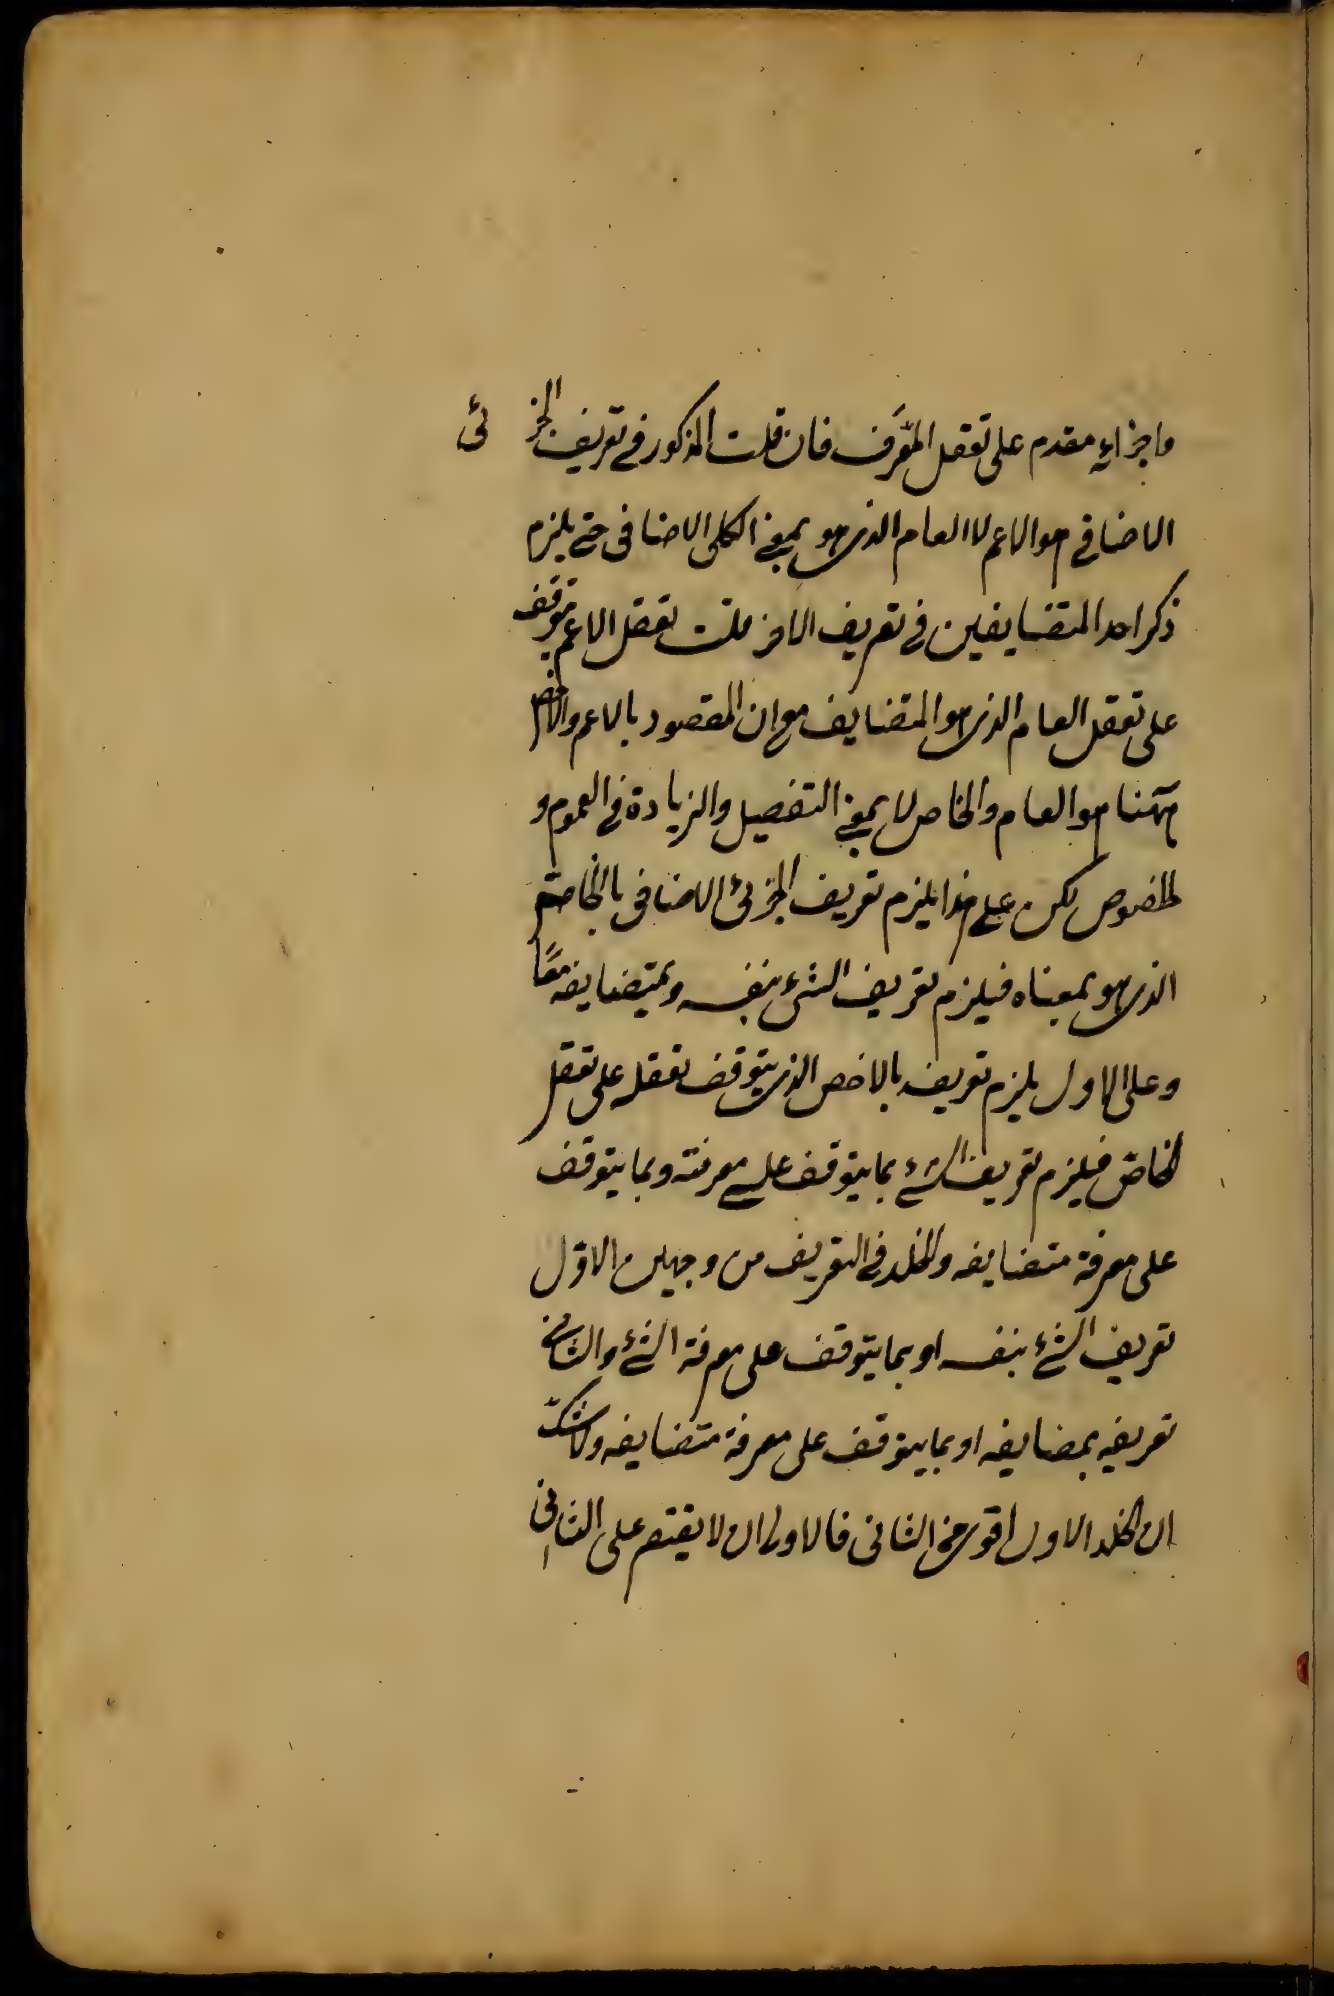 واجزایه مقدم على تعقل المعَرَّف فان قلت المذكور في تعريف الجزئى
الاضافي هو الاعم لا العام الذي هو بمعنى الكلى الاضافى حتى يلزم
ذكر احد المتضايفين في تعريف الاخر قلت تعقل الاعم يتوقف
على تعقل العام الذي هو المتضايف مع ان المقصود بالاعم والاخص
ههنا هو العام والخاص لا بمعنى التفضيل والزيادة في العموم و
الخصوص لكن على هذا يلزم تعريف الجزئى الاضافى بالخاص
الذي هو بمعناه فيلزم تعريف الشىء بنفسه وبمتضايفه معًا
وعلى الاول يلزم تعريفه بالاخص الذي يتوقف تعقله على تعقل
الخاصّ فيلزم تعريف الشئ بما يتوقف على معرفته وبما يتوقف
على معرفة متضايفه والخلل في التعريف من وجهين الاوّل
تعريف الشئ بنفسه او بما يتوقف على معرفة الشئ والثاني
تعريفه بمضايفه او بما يتوقف على معرفة متضايفه ولا شكّ
ان الخلل الاول اقوى من الثانى فالاولى ان لا يقتصر على الثانى